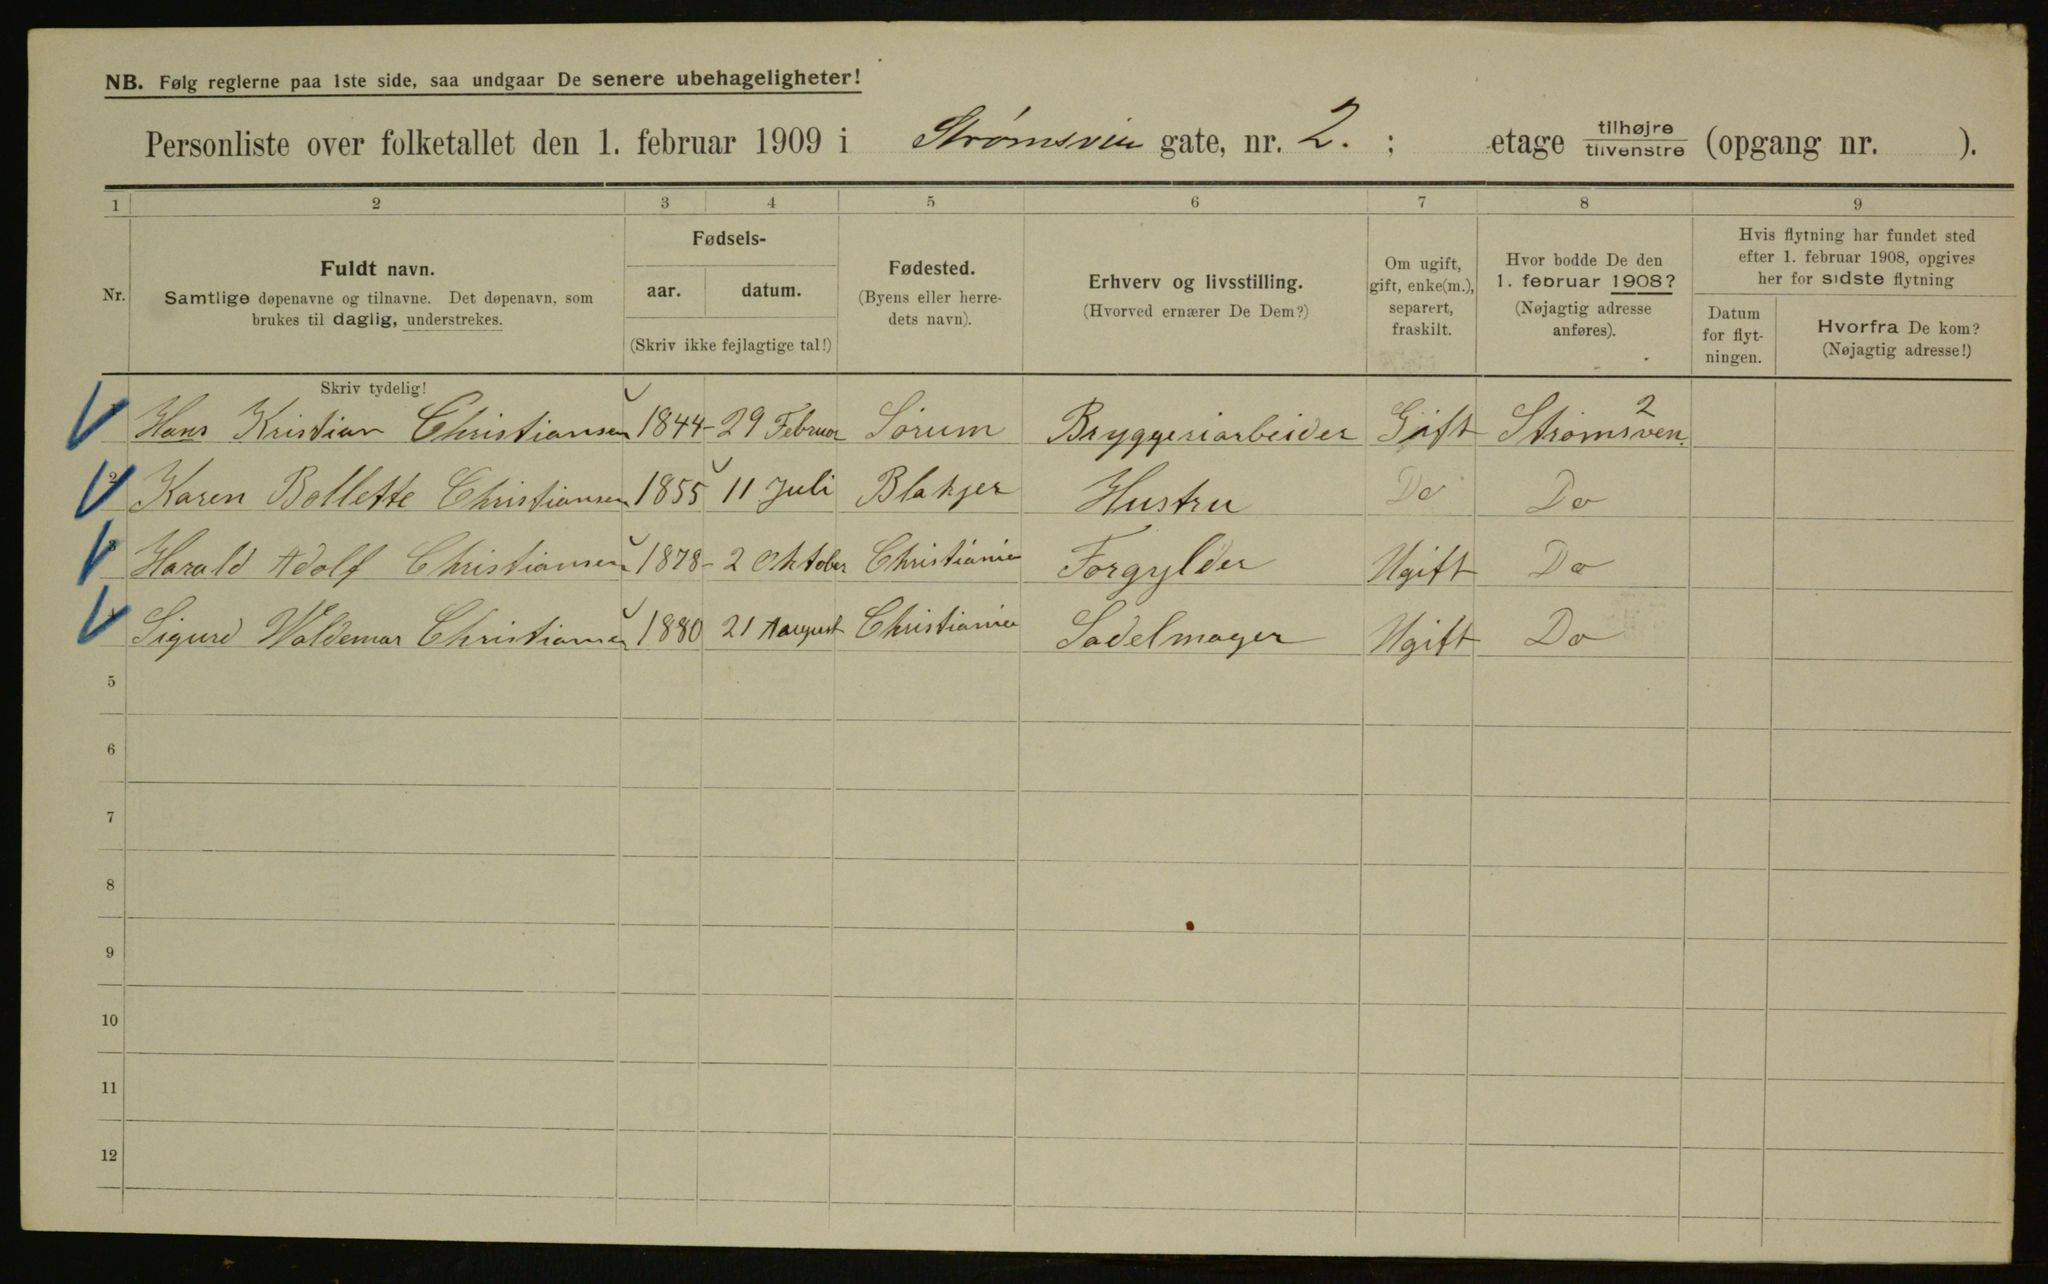 NB. Følg reglerne paa 1ste side, saa undgaar De senere ubehageligheter!
Personliste over folketallet den 1. februar 1909 i Strømsvien gate, nr. 2. ; etage tilhøjre tilvenstre (opgang nr. ).
1 2 3 4 5 6 7 8 9
Nr.
Fuldt navn.
Samtlige døpenavne og tilnavne. Det døpenavn, som
brukes til daglig, understrekes.
Fødsels-
aar. datum.
(Skriv ikke fejlagtige tal!)
Fødested.
(Byens eller herre-
dets navn).
Erhverv og livsstilling.
(Hvorved ernærer De Dem?)
Om ugift,
gift, enke(m.),
separert,
fraskilt.
Hvor bodde De den
1. februar 1908?
(Nøjagtig adresse
anføres).
Hvis flytning har fundet sted
efter 1. februar 1908, opgives
her for sidste flytning
Datum
for flyt-
ningen.
Hvorfra De kom?
(Nøjagtig adresse!)
Skriv tydelig!
1 Hans Kristian Christiansen 1844 - 29 Februar Sørum Bryggeriarbeider Gift Strømsven. 2
2 Karen Bollette Christiansen 1855 11 Juli Blakjer Hustru Do Do
3 Harald Adolf Christiansen 1878 - 2 Oktober Christiania Forgylder Ugift Do
4 Sigurd Waldemar Christiansen 1880 21 August Christiania Sadelmager Ugift Do
5
6
7
8
9
10
11
12